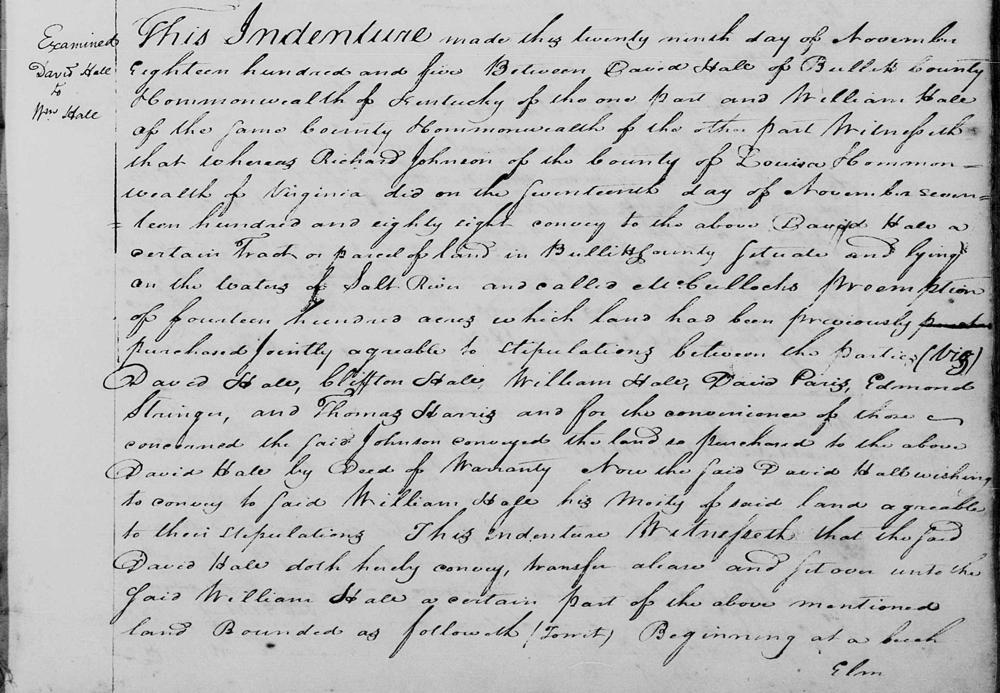 Examined
David Hall
to
Wm Hall
This Indenture made this twenty ninth day of November
Eighteen hundred and five Between David Hall of Bullitt County
Kommonwealth of Kentucky of the one part and William Hall
of the same County Kommonwealth of the other part Witnesseth
that whereas Richard Johnson of the County of Louisa Kommon=
wealth of Virginia did on the Seventeenth day of November seven=
=teen hundred and eighty eight convey to the above David Hall a
certain Tract or parcel of land in Bullitt County Situate and lying
on the waters of Salt River and called McCullochs Preemption
of fourteen hundred acres which land had been previously
purchased Jointly agreable to stipulations between the parties (Viz)
David Hall, Cliffton Hall, William Hall, David Paris, Edmond
Stringer, and Thomas Harris and for the convenience of those
concerned the said Johnson conveyed the land so purchased to the above
David Hall by Deed of Warranty Now the said David Hall wishing
to convey to said William Hall his Moity of said land agreable
to their stipulations This indenture Witnesseth that the said
David Hall doth hereby convey, transfer alease and set over unto the
said William Hall a certain part of the above mentioned
land Bounded as followeth (Towit) Beginning at a beech
Elm